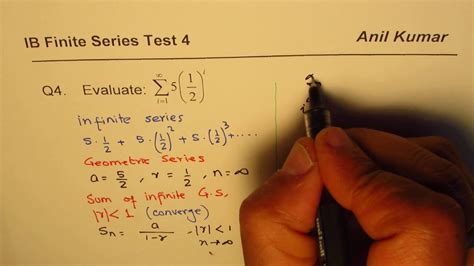 IB Finite Series Test 4 Anil Kumar
Q4. Evaluate: ∑_{i=1}^{∞} 5(1/2)^i
infinite series
5·1/2 + 5·(1/2)^2 + 5·(1/2)^3 + ....
Geometric Series
a = 5/2 , r = 1/2 , n = ∞
Sum of infinite G.S,
|r| < 1 (converge)
Sn = a/(1-r) -|r| < 1
n→∞